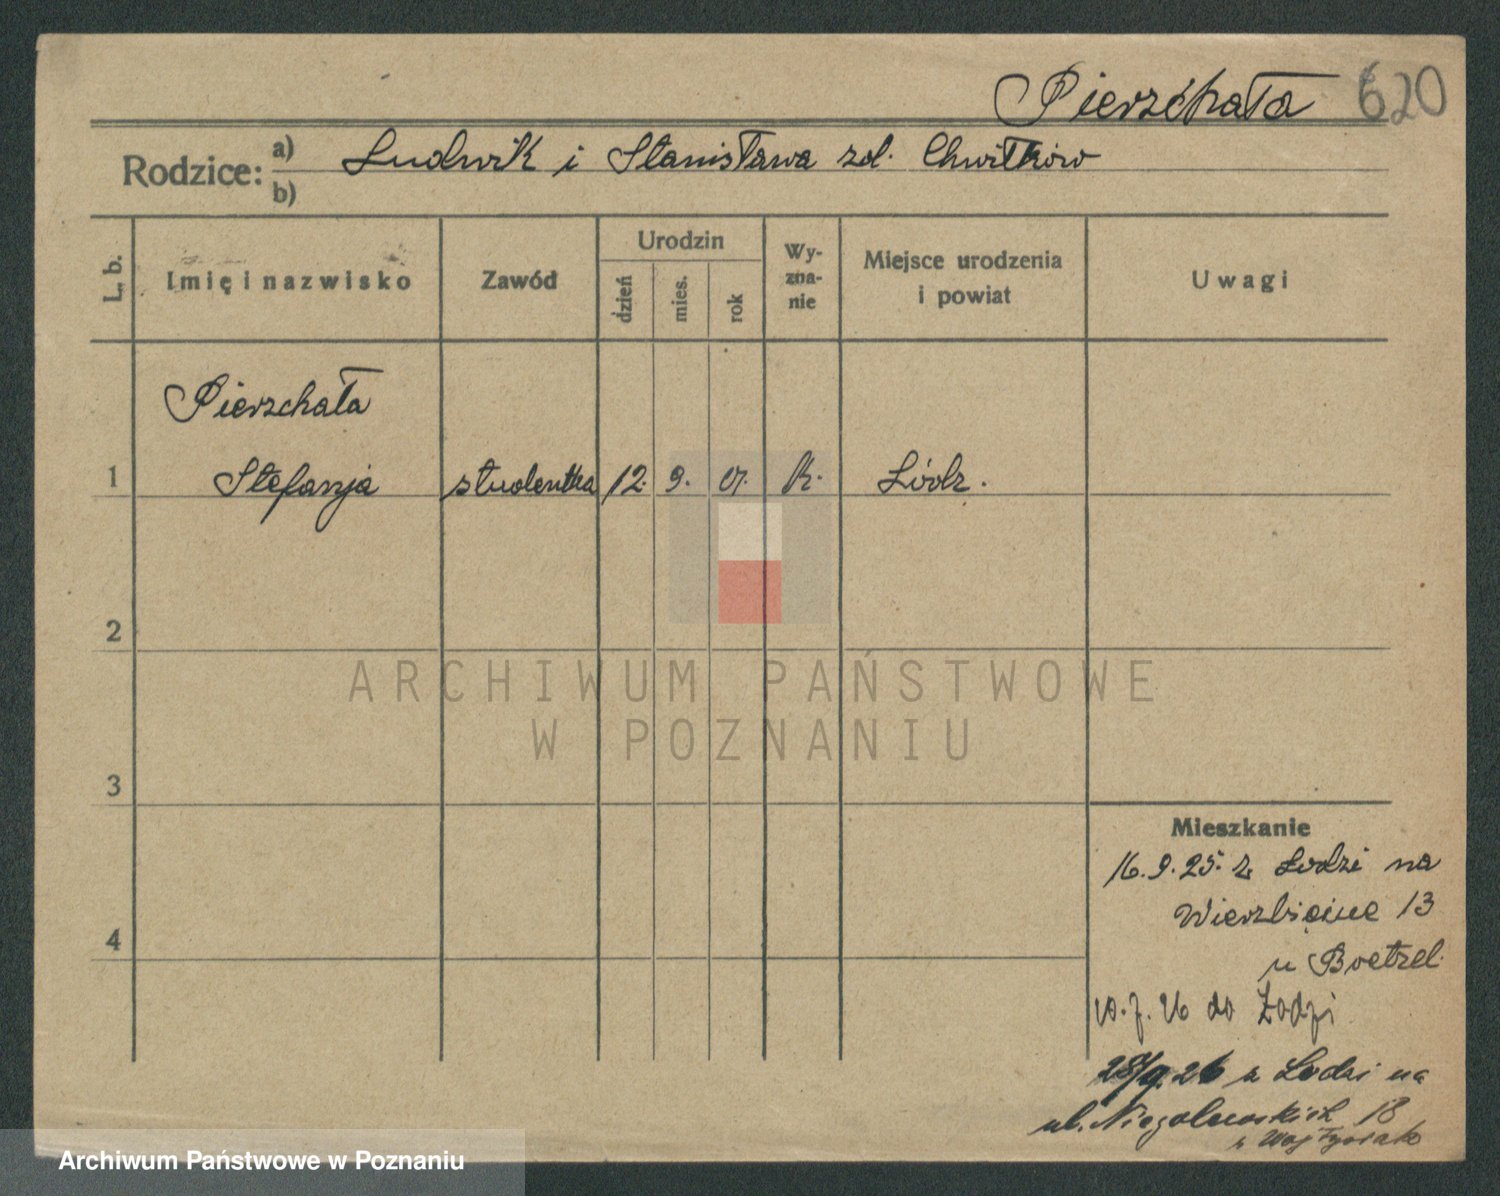 Pierzchała 620
Rodzice: a) Ludwik i Stanisława zd. Chwiłków
b)
L. b. Imię i nazwisko Zawód Urodzin dzień mies. rok Wy-zna-nie Miejsce urodzenia i powiat Uwagi
Pierzchała
1 Stefanja studentka 12. 9. 07. k. Łódz.
2
3
4
Mieszkanie
16.9.25. z Łodzi na
Wierzbięcice 13
u Boetzel
10.7.26 do Łodzi
28/9.26 z Łodzi na
ul. Niegolewskich 18
ARCHIWUM PAŃSTWOWE
W POZNANIU
Archiwum Państwowe w Poznaniu